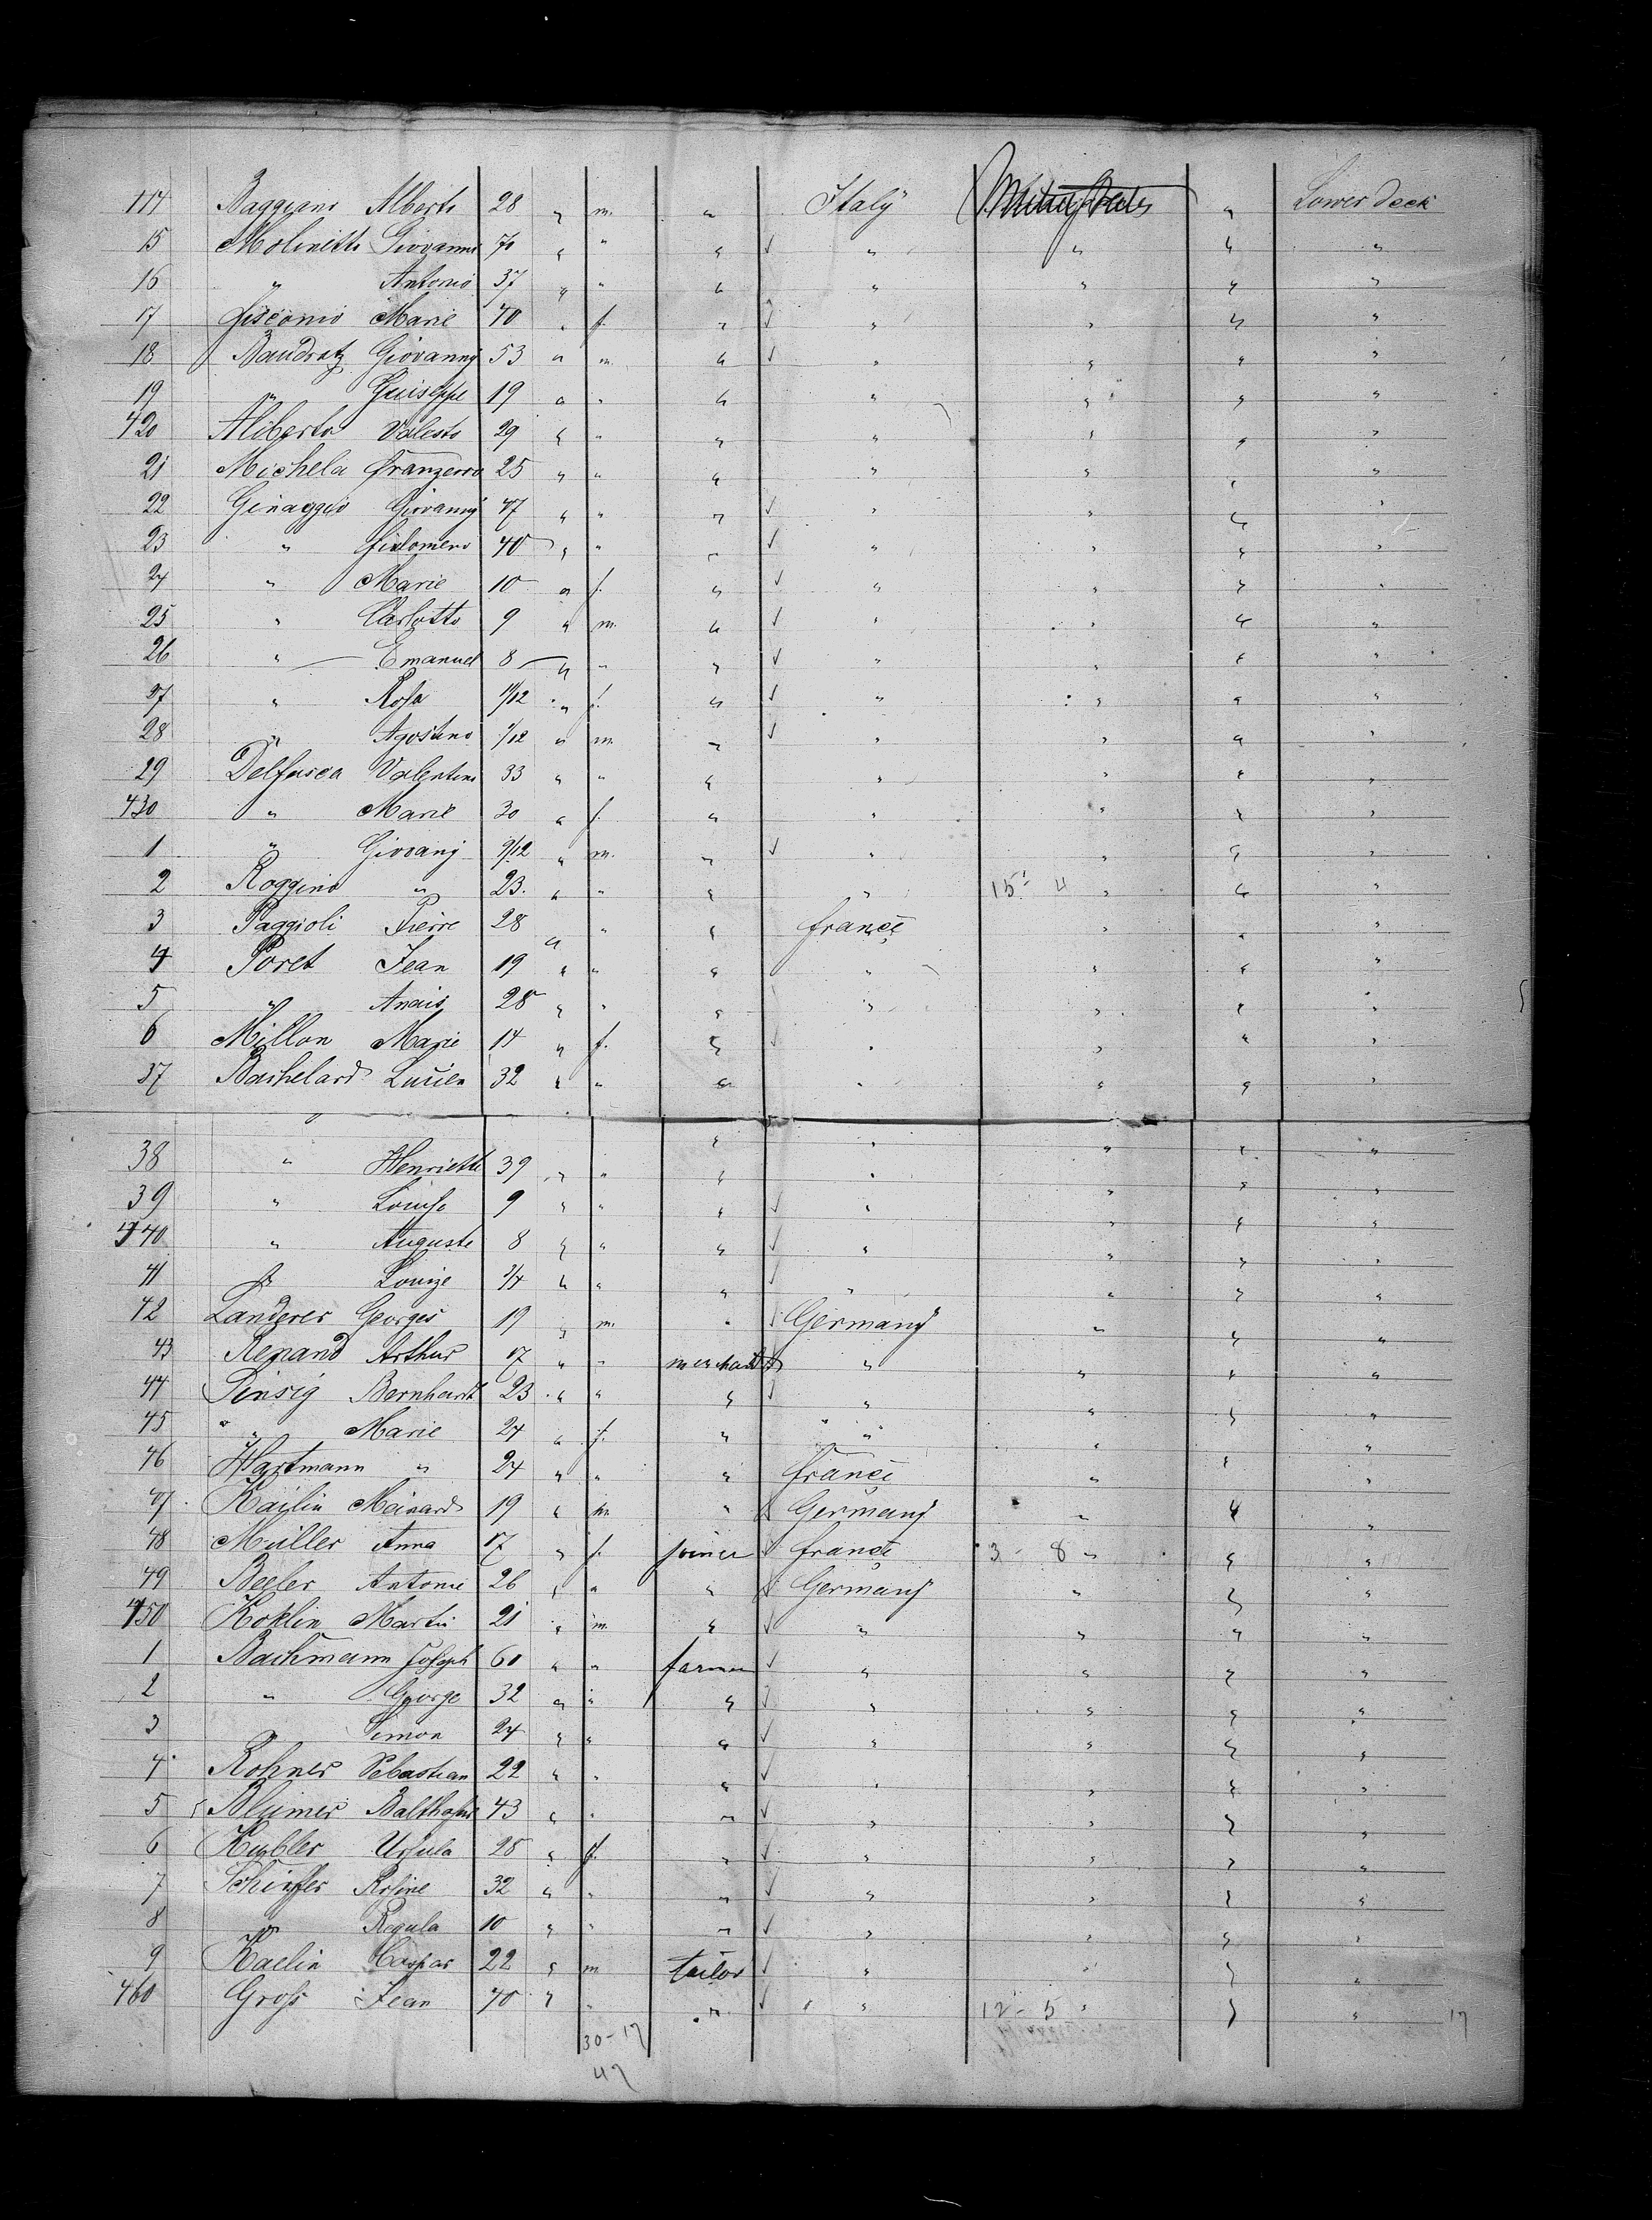 414 Baggiano Alberto 28 " m. " Italy United States " Lower deck
15 Molinetti Giovanni 70 " " " " " " "
16 " Antonio 37 " " " " " " "
17 Marie 40 " f. " " " " "
18 Baudratz Giovanny 53 " m " " " " "
19 " Guiseppe 19 " " " " " " "
420 Aliberto Valesto 29 " " " " " " "
21 Michela Franzerro 25 " " " " " " "
22 Ginaggio Giovanny 47 " " " " " " "
23 " Filomeno 40 " " " " " " "
24 " Marie 10 " f. " " " " "
25 " Carlotto 9 " m. " " " " "
26 " Emanuel 8 " " " " " " "
27 " Rosa 11/12 " f. " " " " "
28 " Agostino 1/12 " m. " " " " "
29 Delfusca Valentino 33 " " " " " " "
430 " Marie 30 " f. " " " " "
1 " Giovanj 9/12 " m. " " " " "
2 Roggino " 23. " " " " 15 - 4 " " "
3 Paggioli Pierre 28 " " " france " " "
4 Poret Jean 19 " " " " " " "
5 " Anais 28 " " " " " " "
6 Millon Marie 14 " f. " " " " "
37 Bachelard Lucien 32 " " " " " " "
38 " Henriette 39 " " " " " " "
39 " Louise 9 " " " " " " "
440 " Auguste 8 " " " " " " "
41 " Louize 3/4 " " " " " " "
42 Landerer Georges 19 " m. " Germany " " "
43 Renand Arthur 17 " " merchant " " " "
44 Pinsig Bernhardt 23 " " " " " " "
45 " Marie 24 " f. " " " " "
46 Hartmann " 24 " " " france " " "
47 Kailin Meinard 19 " m. " Germany " " "
48 Müller Anna 17 " f. joiner france 3 - 8 " " "
49 Beeler Antonie 26 " " " Germany " " "
450 Koklin Martin 21 " m " " " " "
1 Bachmann Joseph 60 " " farmer " " " "
2 " George 32 " " " " " " "
3 Simon 24 " " " " " " "
4 Rohner Sebastian 22 " " " " " " "
5 Blumer Balthasar 43 " " " " " " "
6 Kubler Ursula 28 " f. " " " " "
7 Rosine 32 " " " " " " "
8 " Regula 10 " " " " " " "
9 Kaelin Caspar 22 " m tailor " " " "
460 Gross Jean 40 " " " " 12 - 5 " " " 17
30 - 17
47